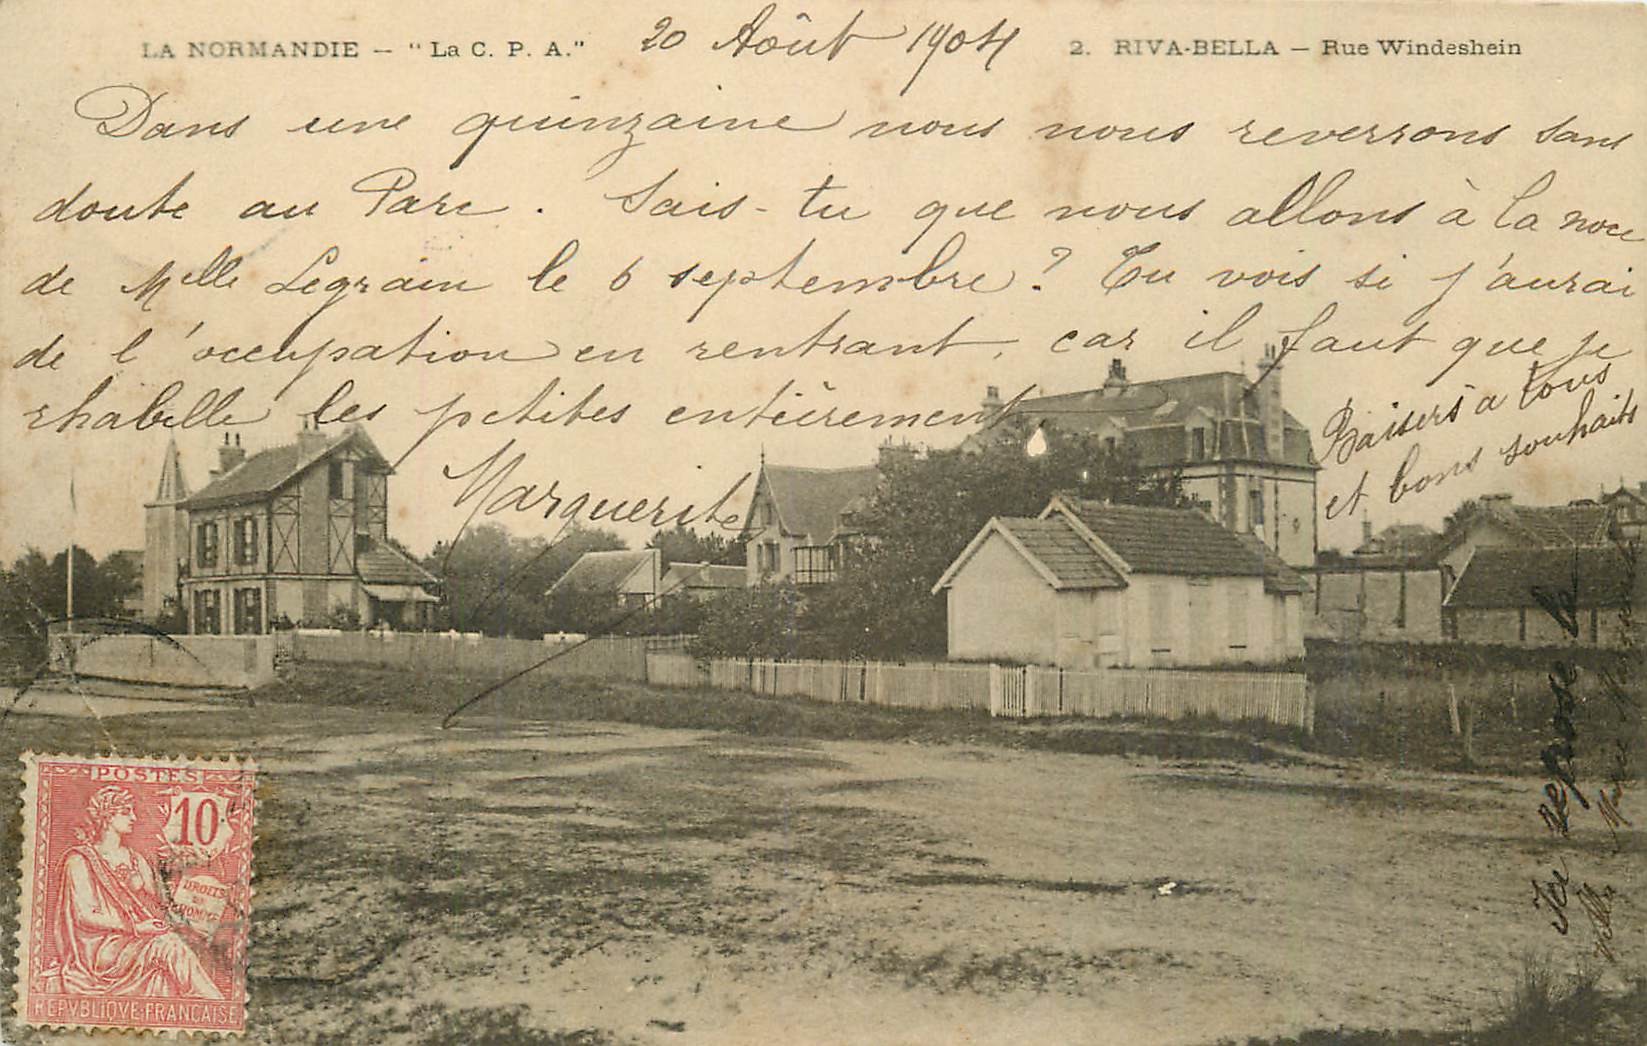 LA NORMANDIE — "La C. P. A."
20 Août 1904
2. RIVA-BELLA — Rue Windeshein
Dans une quinzaine nous nous reverrons sans
doute au Parc. Sais-tu que nous allons à la noce
de Mlle Legrain le 6 septembre? Tu vois si j'aurai
de l'occupation en rentrant, car il faut que je
rhabille les petites entièrement
Baisers à tous
et bons souhaits
Marguerite
Ici repose le
Villa Marie
POSTES
10
DROITS
DE
L'HOMME
REPVBLIQVE FRANÇAISE